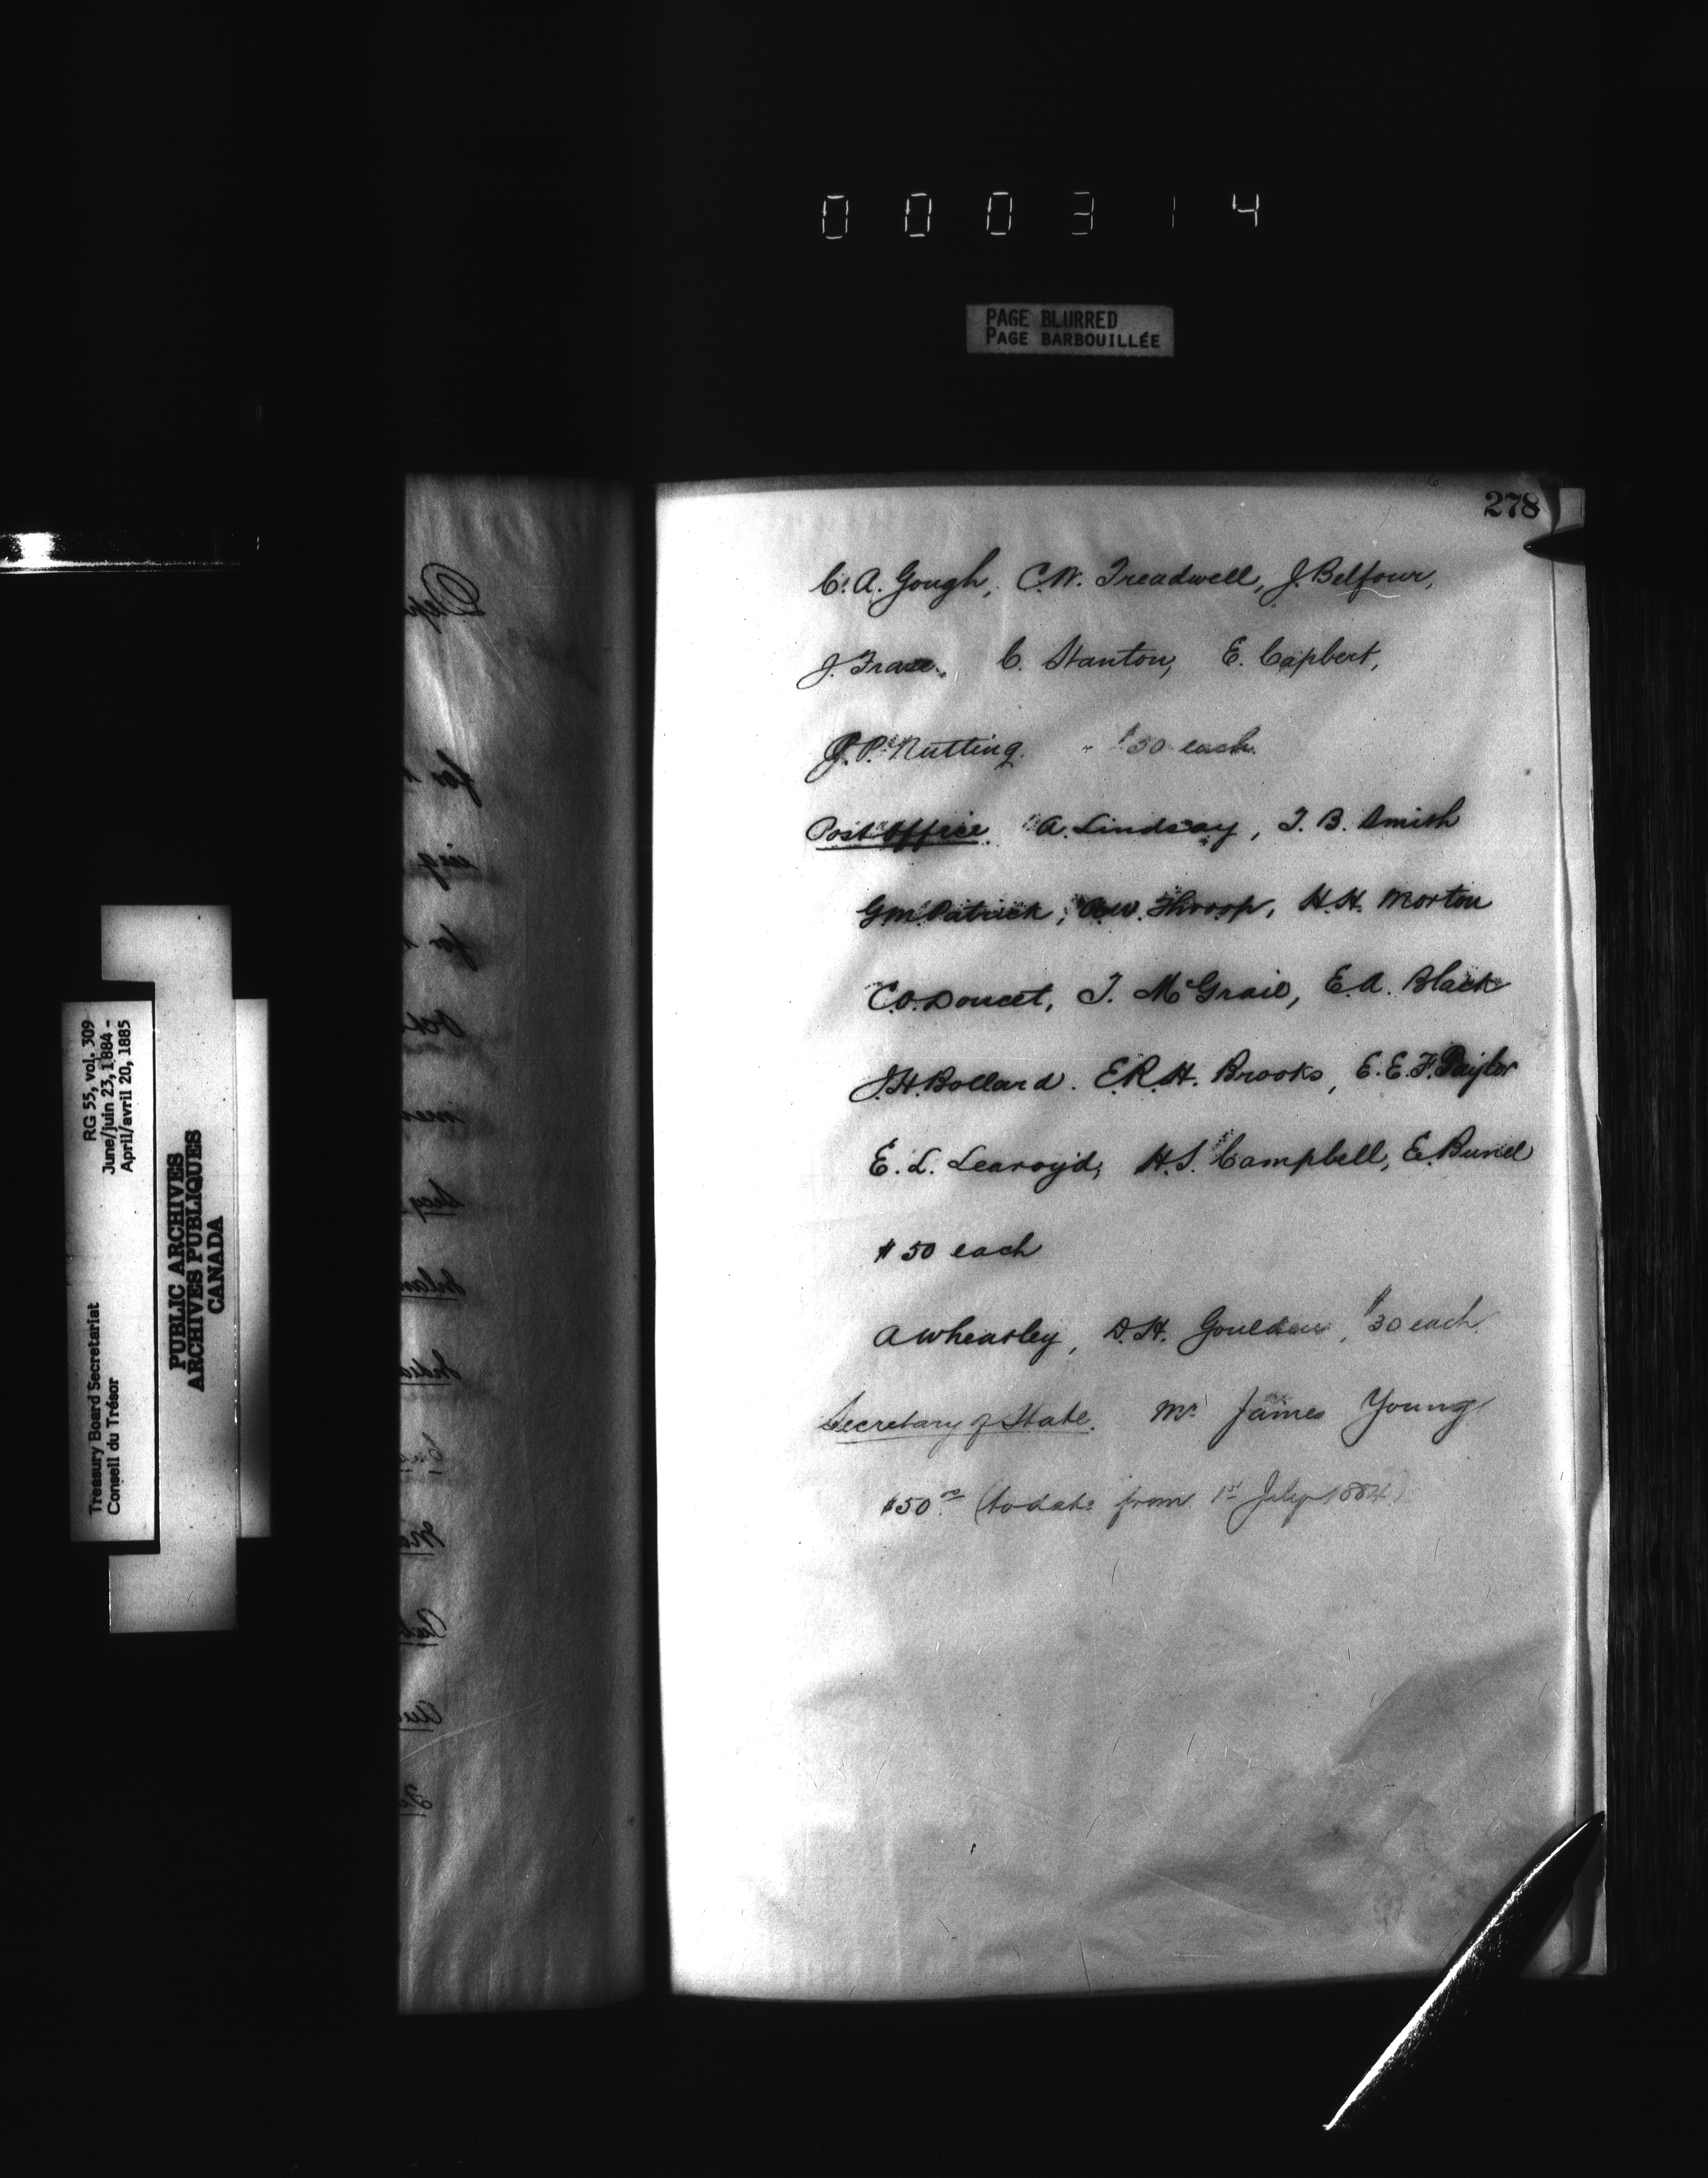 000314
PAGE BLURRED
PAGE BARBOUILLÉE
278
C. A. Gough, C. W. Treadwell, J. Belfour,
J. Frase, C. Stanton, E. Capbert,
J. P. Nutting. $50 each.
Post Office. A. Lindsay, T. B. Smith
G M Patrick, A. W. Throop, H. H. Morton
C. O. Doucet, T. McGrail, E. A. Black
J. H. Bollard. E. R. H. Brooks, E. E. F. Taylor
E. L. Learoyd, H. S. Campbell, E.
$50 each
A Wheatley, D. H. Goulden, $30 each.
Secretary of State. Mr James Young
$50.00 (to date from 1st July 1884)
RG 55, vol. 309
June/juin 23, 1884 -
April/avril 20, 1885
Treasury Board Secretariat
Conseil du Trésor
PUBLIC ARCHIVES
ARCHIVES PUBLIQUES
CANADA